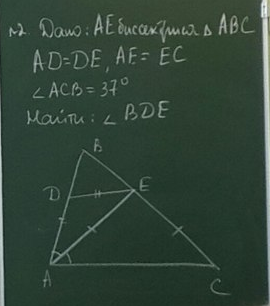 №2. Дано: AE биссектриса △ ABC
AD=DE, AE=EC
∠ACB=37°
Найти: ∠BDE
B
D
E
A
C